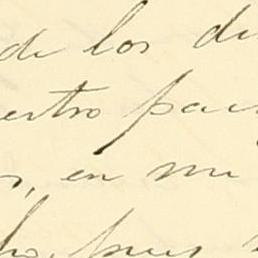 de los di
estro pais
s, en mi
ho, pues